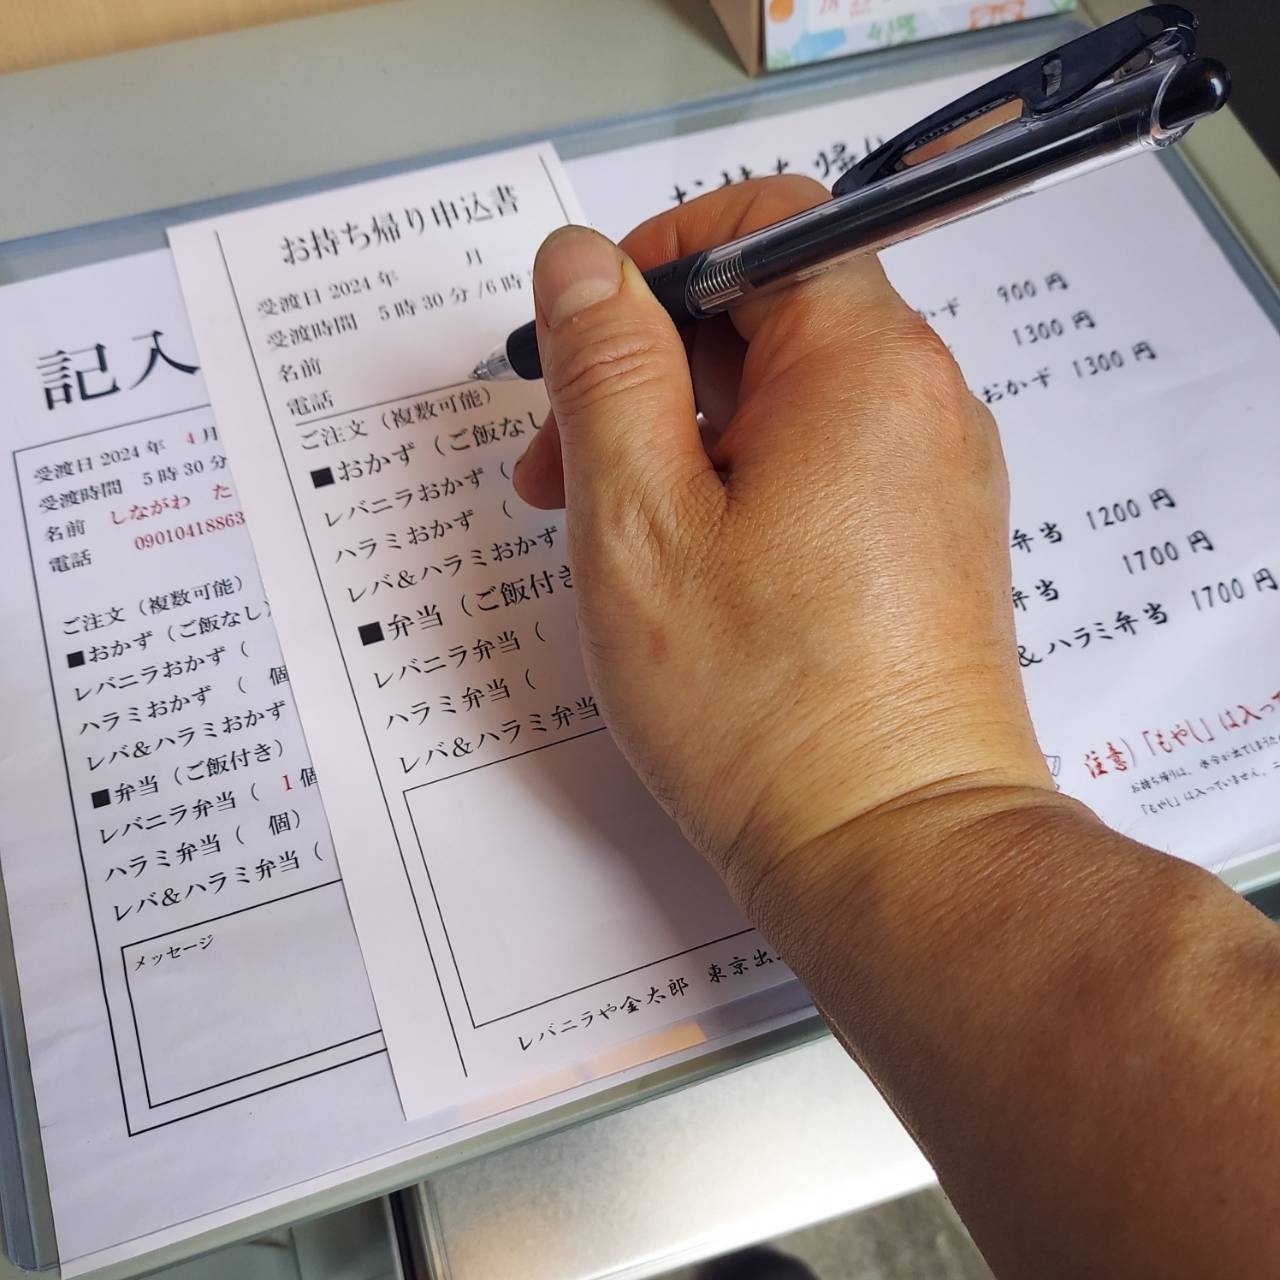 記入
受渡日 2024 年 4 月
受渡時間 5 時 30 分
名前 しながわ た
電話 09010418863
ご注文（複数可能）
■おかず（ご飯なし）
レバニラおかず（
ハラミおかず （ 個
レバ＆ハラミおかず
■弁当（ご飯付き）
レバニラ弁当（ 1 個
ハラミ弁当（ 個）
レバ＆ハラミ弁当（
メッセージ
お持ち帰り申込書
受渡日 2024 年 月
受渡時間 5 時 30 分 /6 時
名前
電話
ご注文（複数可能）
■おかず（ご飯なし
レバニラおかず（
ハラミおかず （
レバ＆ハラミおかず
■弁当（ご飯付き
レバニラ弁当（
ハラミ弁当（
レバ＆ハラミ弁当
レバニラや金太郎 東京出
お持ち帰り
かず 900 円
1300 円
おかず 1300 円
弁当 1200 円
弁当 1700 円
＆ハラミ弁当 1700 円
注意）「もやし」は入っ
お持ち帰りは、水分が出てしまうため
「もやし」は入っていません。